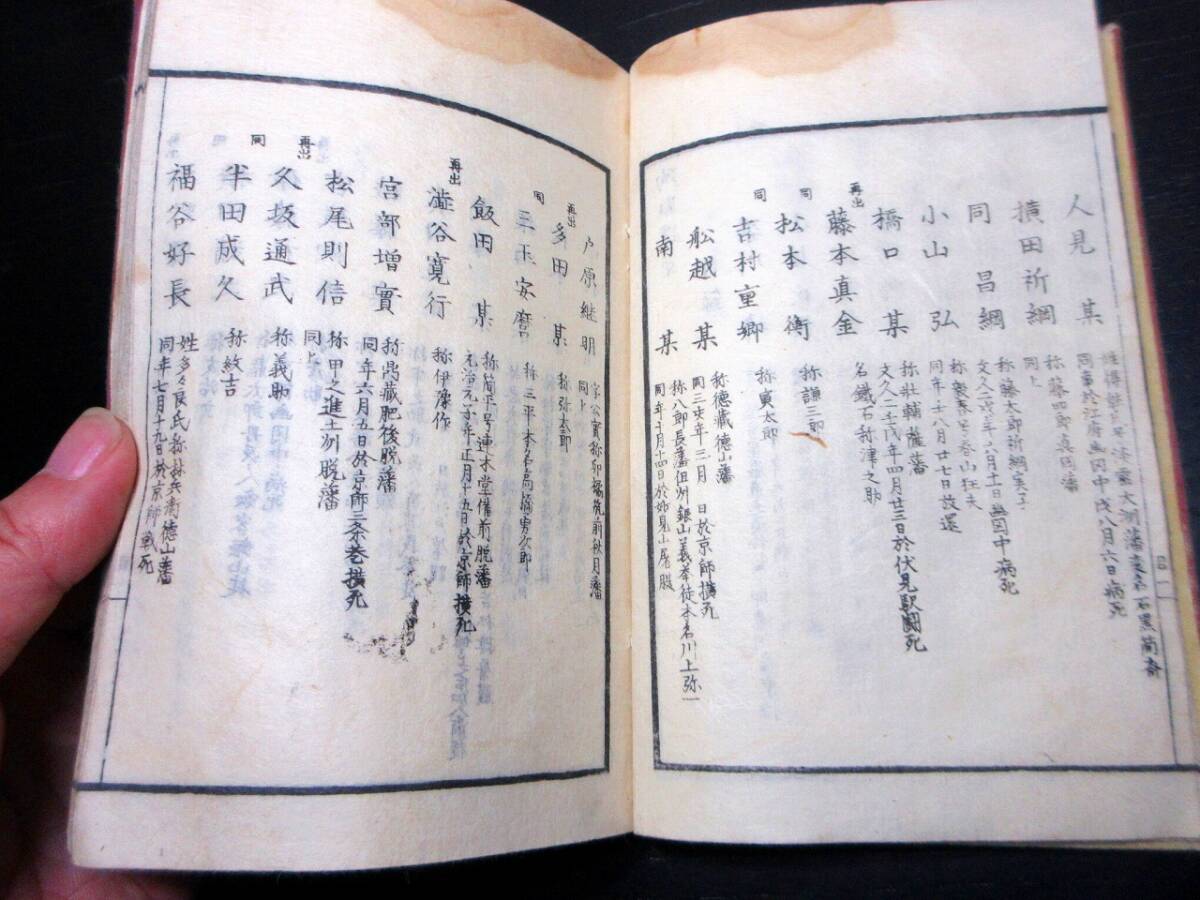 人見　某
同年於江府幽囚中戌八月六日病死
横田祈綱
称藤四郎真岡藩
同上
同　昌綱
称藤太郎祈綱実子
文久二戌年六月十一日幽囚中病死
小山　弘
同年十八月廿七日放還
橋口　某
称壮輔薩藩
文久二壬戌年四月廿三日於伏見駅闘死
再出
藤本真金
名鐵石称津之助
同
松本　衡
称謙三郎
同
吉村重郷
称寅太郎
船越　某
称徳蔵徳山藩
同三支年三月　日於京師横死
南　某
称八郎長藩但州銀山義挙徒本名川上弥一
同年十月十四日於妙見山屠腹
戸原継明
同上
再出
多田　某
称弥太郎
同
三玉安麿
称三平本名高橋男次郎
飯田　某
元治元子年正月十五日於京師横死
再出
澁谷寛行
称伊豫作
宮部増實
称鼎蔵肥後脱藩
同年六月五日於京師三条巷横死
松尾則信
称甲之進土州脱藩
同上
再出
久坂通武
称義助
同
半田成久
称紋吉
福谷好長
同年七月十九日於京師戦死